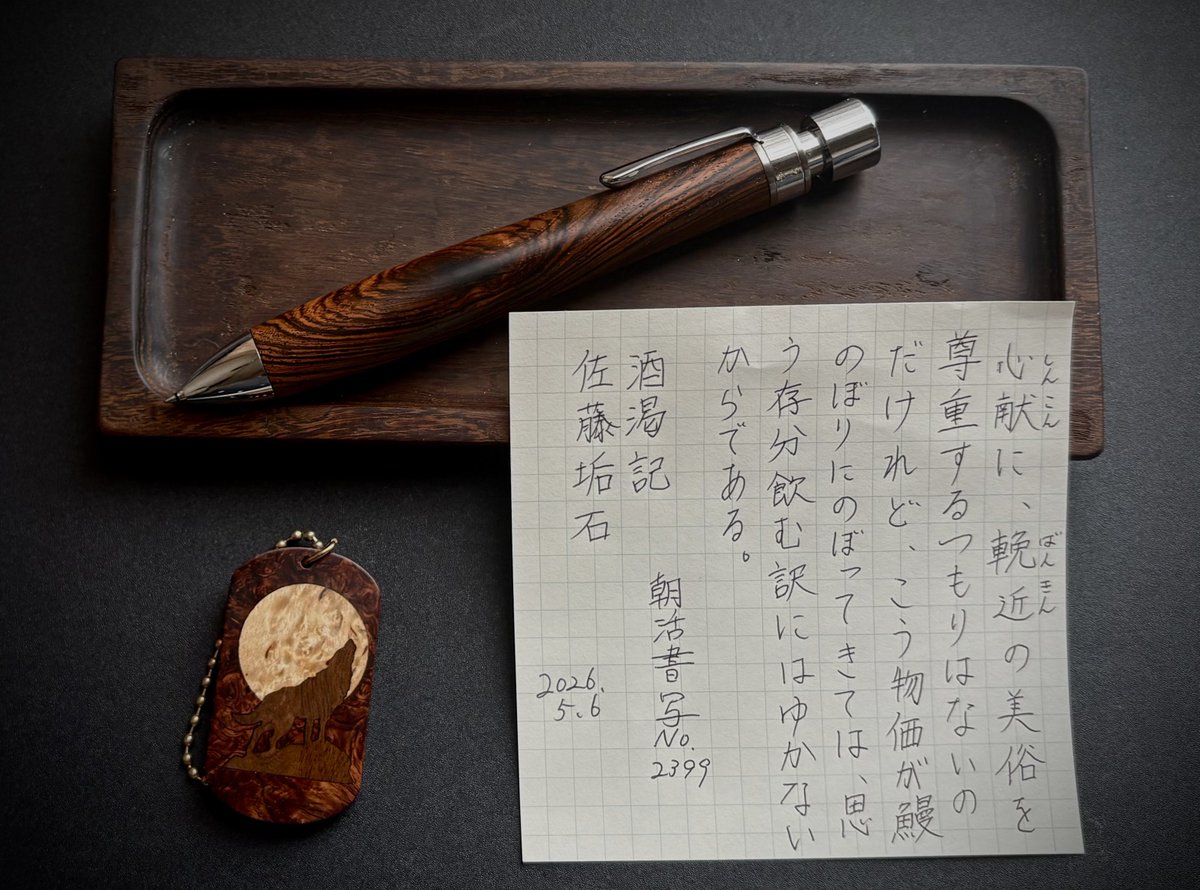 心献に、輓近の美俗を
しんこん
ばんきん
尊重するつもりはないの
だけれど、こう物価が鰻
のぼりにのぼってきては、思
う存分飲む訳にはゆかない
からである。
酒渇記
佐藤垢石
朝活書写
No.
2399
2026.
5.6